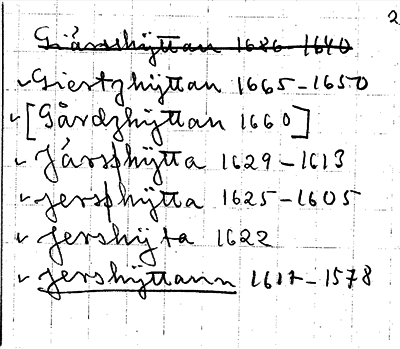 2
Giärsshÿttan 1686-1640
Giertzhÿttan 1665-1650
[Gårdzhÿttan 1660]
Järsshÿtta 1629-1613
jersshÿtta 1625-1605
jershÿta 1622
jershÿttann 1617-1578